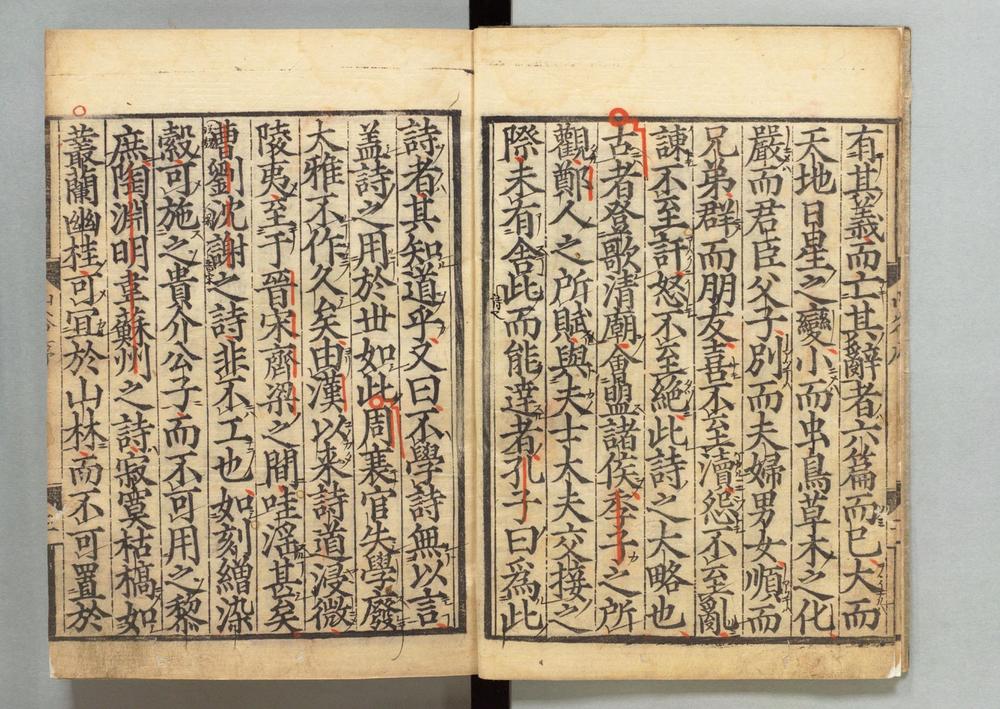 有其義而亡其辭者六篇而已大而
天地日星之變小而虫鳥草木之化
嚴而君臣父子別而夫婦男女順而
兄弟群而朋友喜不至瀆怨不至亂
諫不至訐怒不至絶此詩之大略也
古者登歌清廟會盟諸侯季子之所
觀鄭人之所賦與夫士大夫交接之
際未有舍此而能達者孔子曰爲此
詩者其知道乎又曰不學詩無以言
盖詩之用於世如此周衰官失學廢
大雅不作久矣由漢以来詩道浸微
陵夷至于晉宋齊梁之間哇滛甚矣
曹劉沈謝之詩非不工也如刻繒染
縠可施之貴介公子而不可用之黎
庶陶淵明韋蘇州之詩寂寞枯槁如
叢蘭幽桂可宜於山林而不可置於